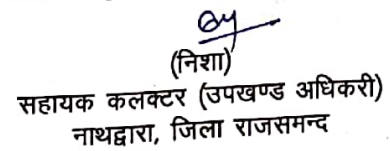 (निशा)
सहायक कलक्टर (उपखण्ड अधिकरी)
नाथद्वारा, जिला राजसमन्द